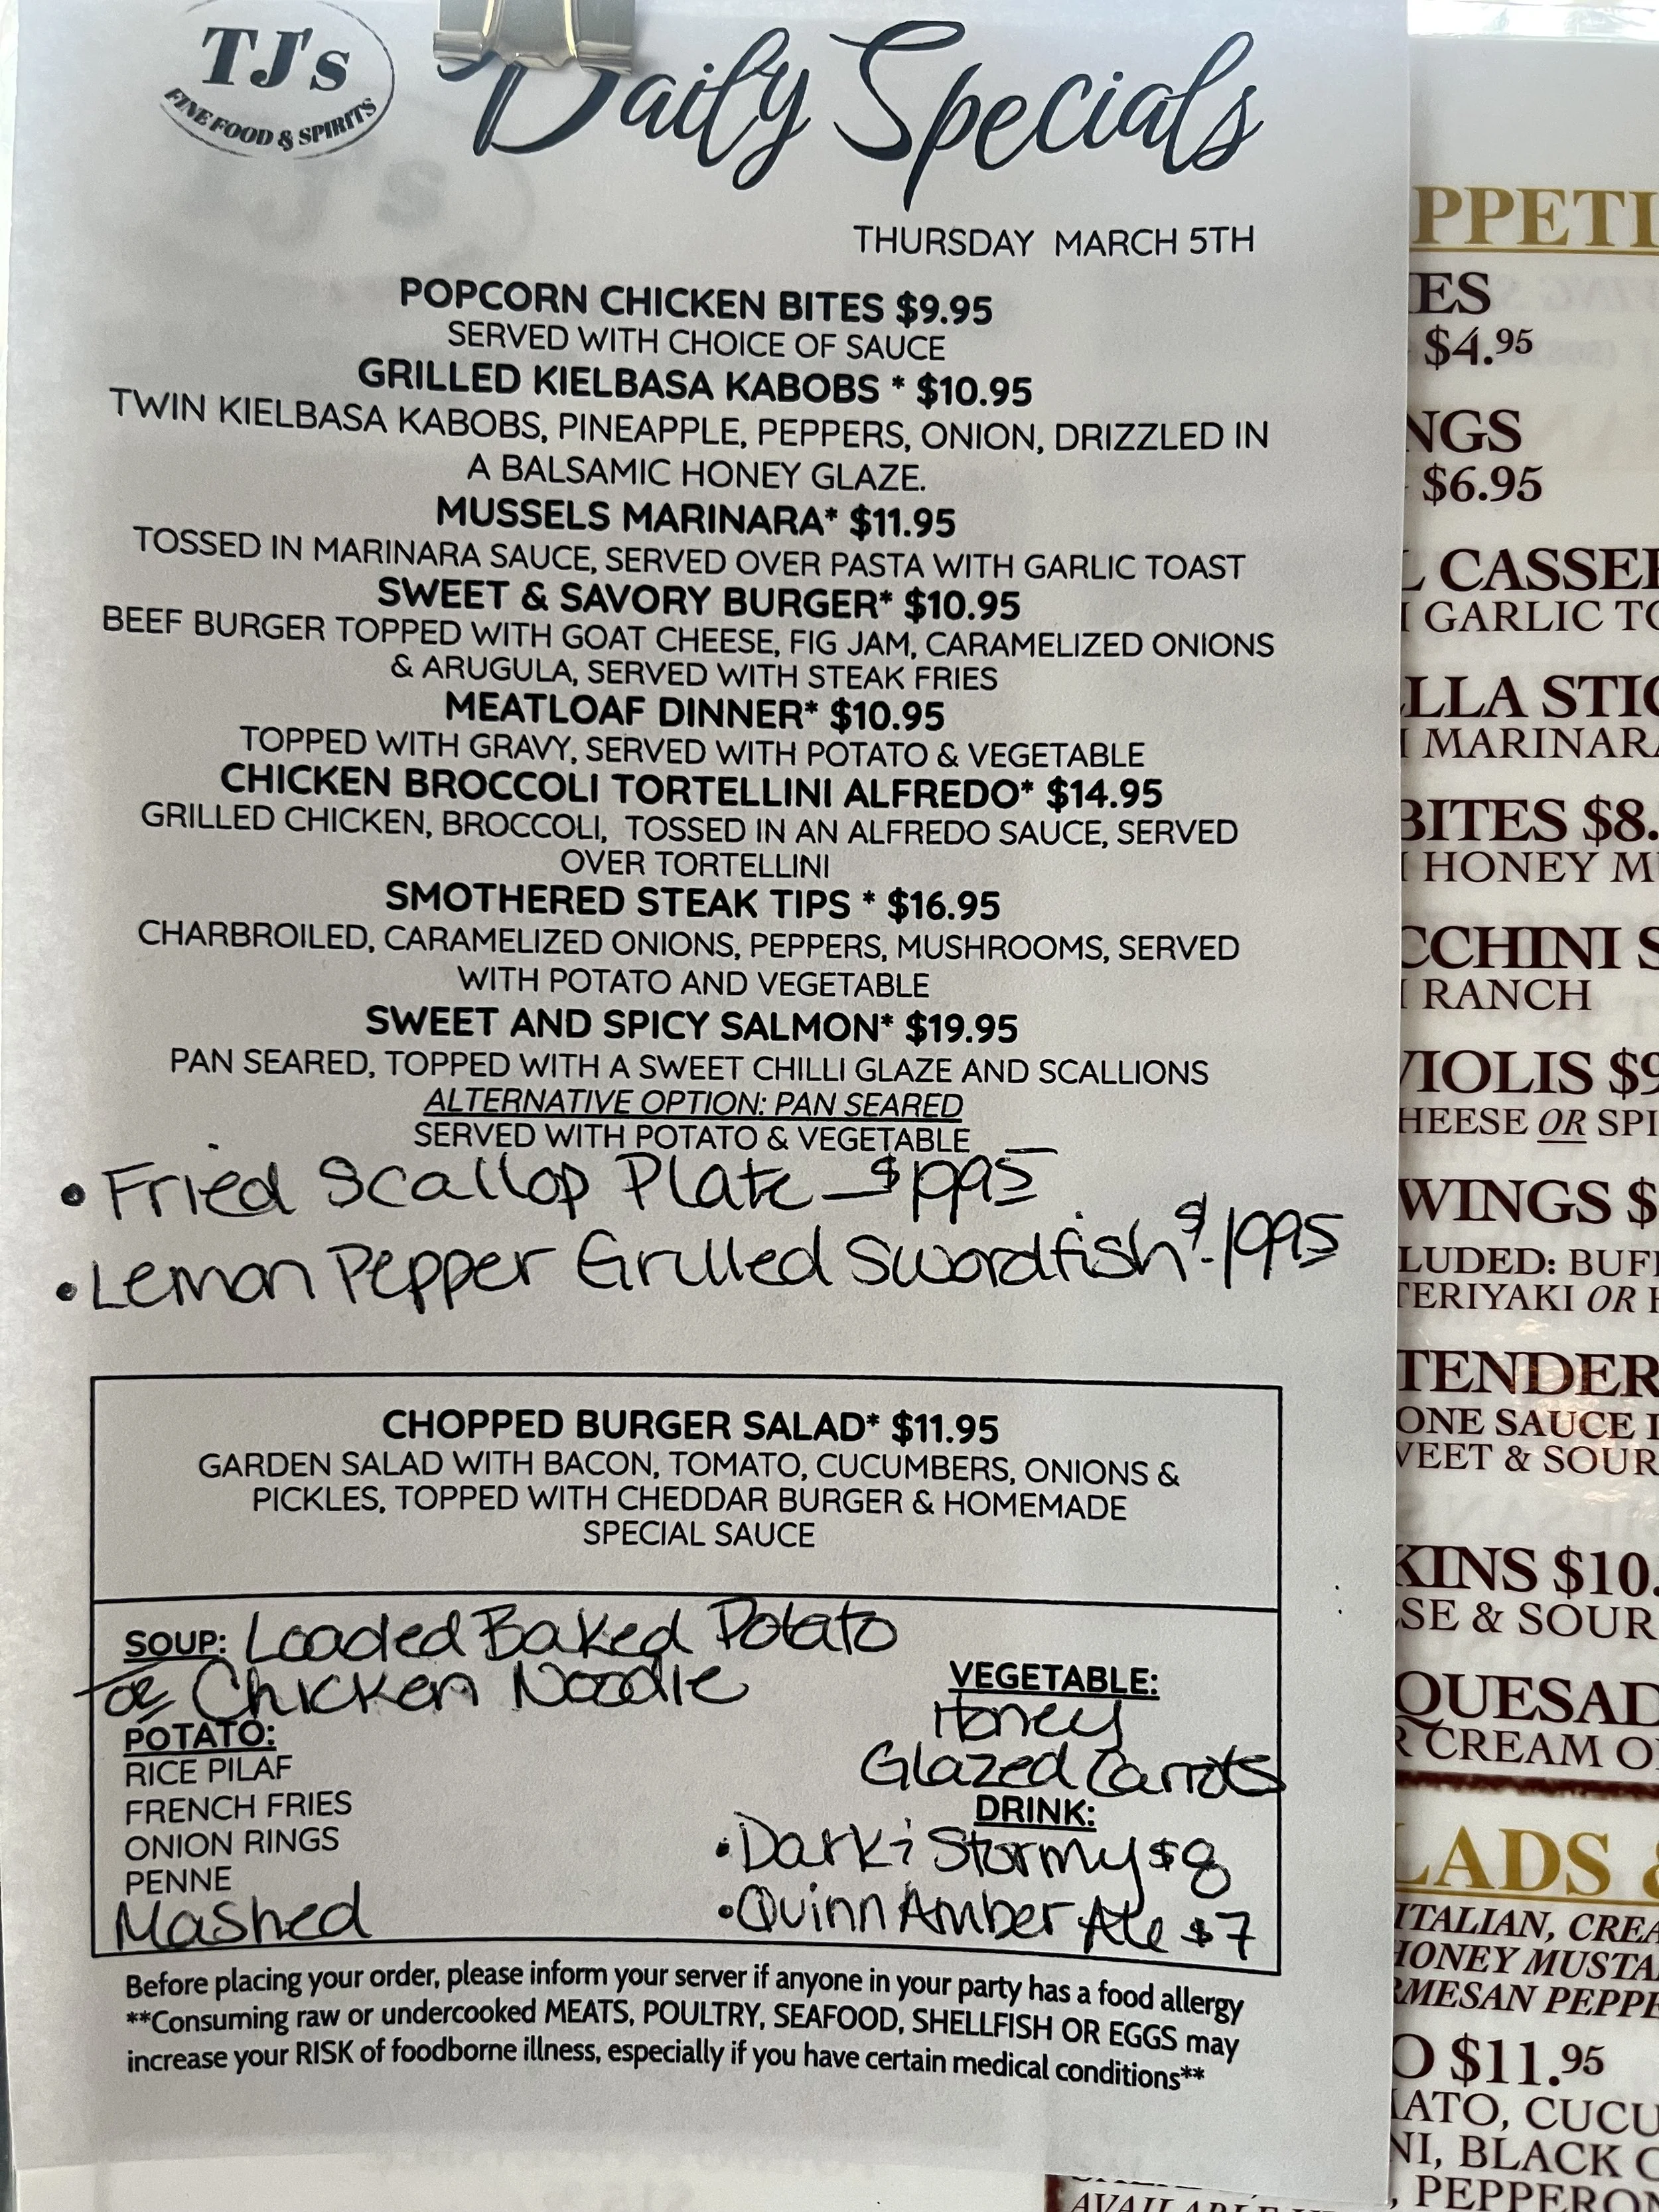 TJ's
FINE FOOD & SPIRITS
Daily Specials
THURSDAY MARCH 5TH
POPCORN CHICKEN BITES $9.95
SERVED WITH CHOICE OF SAUCE
GRILLED KIELBASA KABOBS * $10.95
TWIN KIELBASA KABOBS, PINEAPPLE, PEPPERS, ONION, DRIZZLED IN
A BALSAMIC HONEY GLAZE.
MUSSELS MARINARA* $11.95
TOSSED IN MARINARA SAUCE, SERVED OVER PASTA WITH GARLIC TOAST
SWEET & SAVORY BURGER* $10.95
BEEF BURGER TOPPED WITH GOAT CHEESE, FIG JAM, CARAMELIZED ONIONS
& ARUGULA, SERVED WITH STEAK FRIES
MEATLOAF DINNER* $10.95
TOPPED WITH GRAVY, SERVED WITH POTATO & VEGETABLE
CHICKEN BROCCOLI TORTELLINI ALFREDO* $14.95
GRILLED CHICKEN, BROCCOLI, TOSSED IN AN ALFREDO SAUCE, SERVED
OVER TORTELLINI
SMOTHERED STEAK TIPS * $16.95
CHARBROILED, CARAMELIZED ONIONS, PEPPERS, MUSHROOMS, SERVED
WITH POTATO AND VEGETABLE
SWEET AND SPICY SALMON* $19.95
PAN SEARED, TOPPED WITH A SWEET CHILLI GLAZE AND SCALLIONS
ALTERNATIVE OPTION: PAN SEARED
SERVED WITH POTATO & VEGETABLE
• Fried Scallop Plate - $1995
• Lemon Pepper Grilled Swordfish - $1995
CHOPPED BURGER SALAD* $11.95
GARDEN SALAD WITH BACON, TOMATO, CUCUMBERS, ONIONS &
PICKLES, TOPPED WITH CHEDDAR BURGER & HOMEMADE
SPECIAL SAUCE
SOUP: Loaded Baked Potato
or Chicken Noodle
POTATO:
RICE PILAF
FRENCH FRIES
ONION RINGS
PENNE
Mashed
VEGETABLE:
Honey
Glazed Carrots
DRINK:
• Dark & Stormy $8
• Quinn Amber Ale $7
Before placing your order, please inform your server if anyone in your party has a food allergy
**Consuming raw or undercooked MEATS, POULTRY, SEAFOOD, SHELLFISH OR EGGS may
increase your RISK of foodborne illness, especially if you have certain medical conditions**
PPETI
ES
$4.95
NGS
$6.95
L CASSE
GARLIC TO
LLA STIC
MARINARA
BITES $8.
HONEY M
CCHINI S
RANCH
VIOLIS $9
HEESE OR SPI
WINGS $
LUDED: BUF
TERIYAKI OR
TENDER
ONE SAUCE
VEET & SOUR
KINS $10.
SE & SOUR
QUESAD
R CREAM O
LADS &
ITALIAN, CREA
HONEY MUSTA
RMESAN PEPPE
O $11.95
ATO, CUCU
NI, BLACK
, PEPPERON